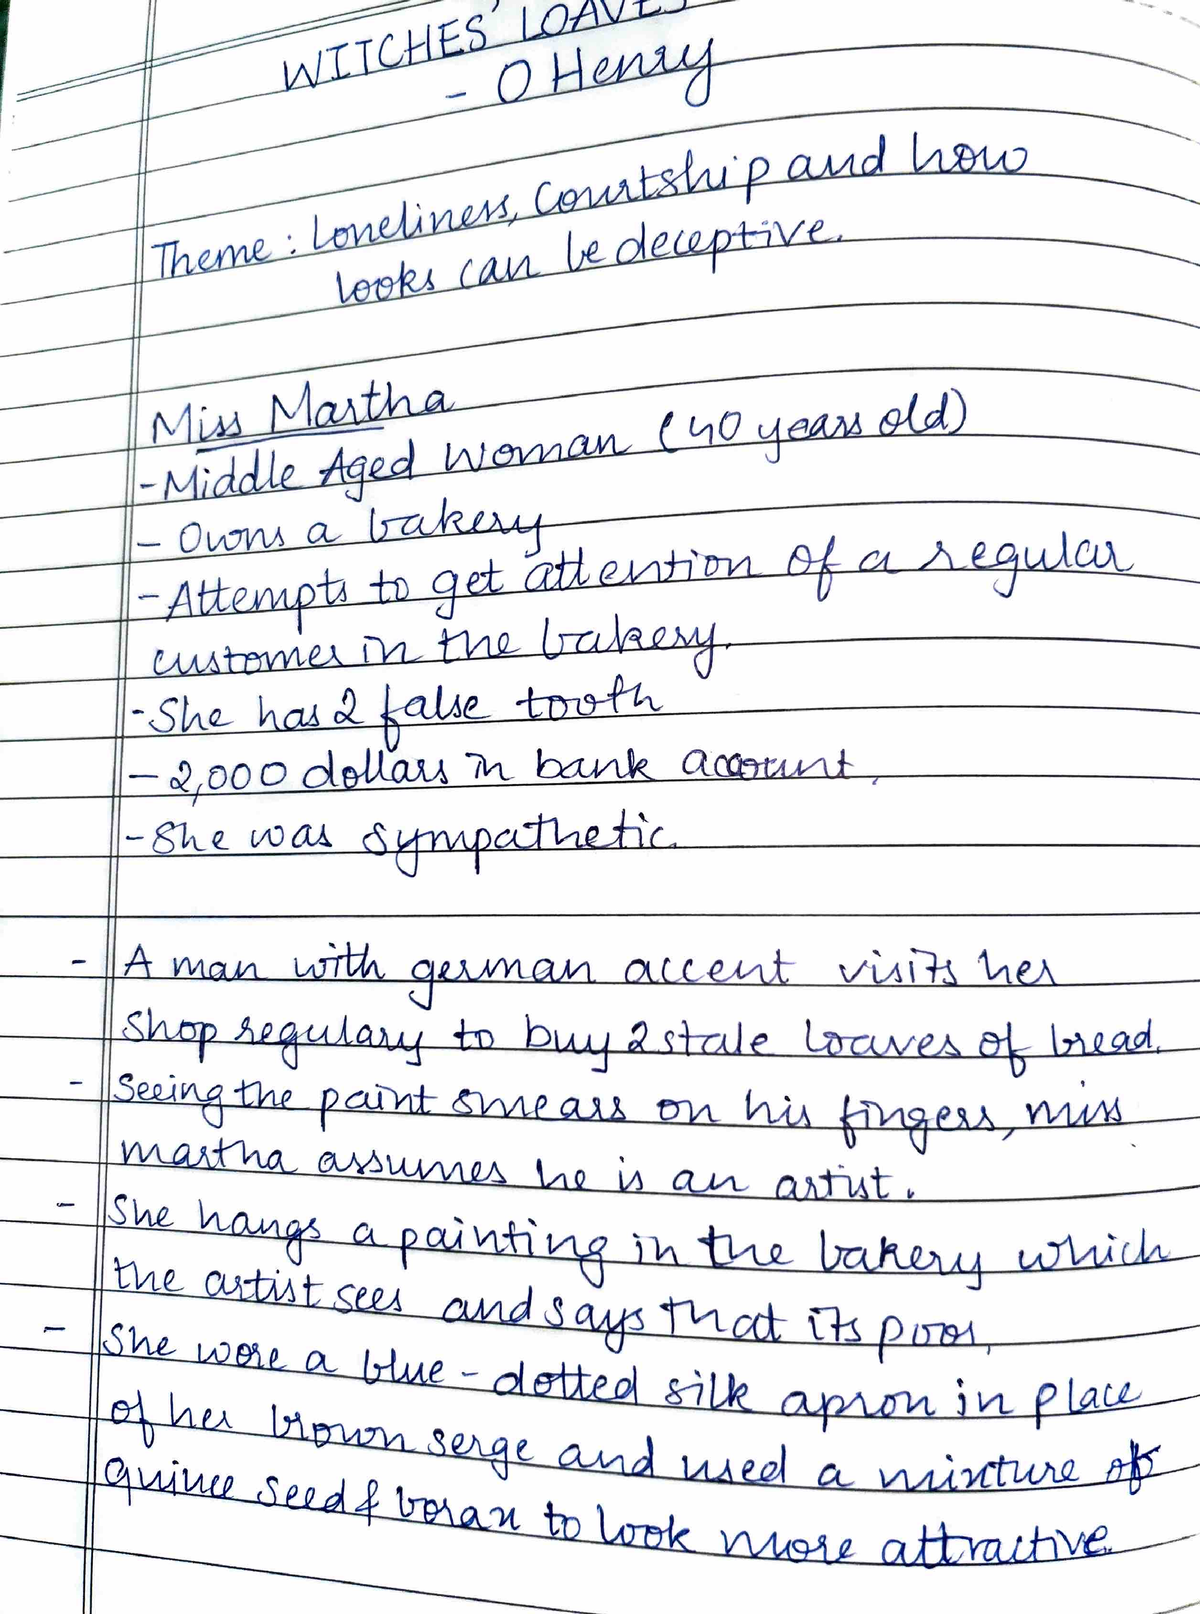 WITCHES' LOAVES
- O Henry
Theme: Loneliness, Courtship and how
looks can be deceptive.
Miss Martha
- Middle Aged woman (40 years old)
- Owns a bakery
- Attempts to get attention of a regular
customer in the bakery.
- She has 2 false tooth
- 2,000 dollars in bank account.
- She was sympathetic.
- A man with german accent visits her
shop regulary to buy 2 stale loaves of bread.
- Seeing the paint smears on his fingers, miss
martha assumes he is an artist.
- She hangs a painting in the bakery which
the artist sees and says that its poor,
- She wore a blue-dotted silk apron in place
of her brown serge and used a mixture of
quince seed & borax to look more attractive.